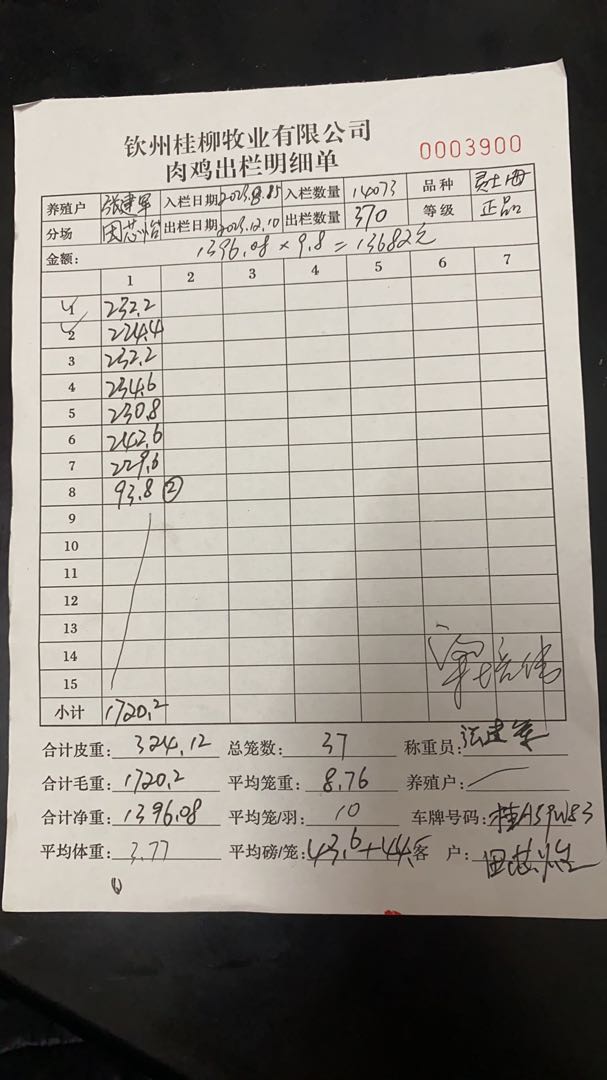 钦州桂柳牧业有限公司
肉鸡出栏明细单
0003900
养殖户 张建军 入栏日期 2023.8.25 入栏数量 14073 品种
分场 田芯怡 出栏日期 2023.12.10 出栏数量 370 等级 正品
金额: 1396.08 × 9.8 = 13682元
1 2 3 4 5 6 7
1 232.2
2 224.4
3 232.2
4 234.6
5 230.8
6 242.6
7 229.6
8 93.8 ②
9
10
11
12
13
14
15
小计 1720.2
合计皮重: 324.12 总笼数: 37 称重员: 张建军
合计毛重: 1720.2 平均笼重: 8.76 养殖户:
合计净重: 1396.08 平均笼/羽: 10 车牌号码:
平均体重: 3.77 平均磅/笼: 43.6+44.5 客 户: 田芯怡